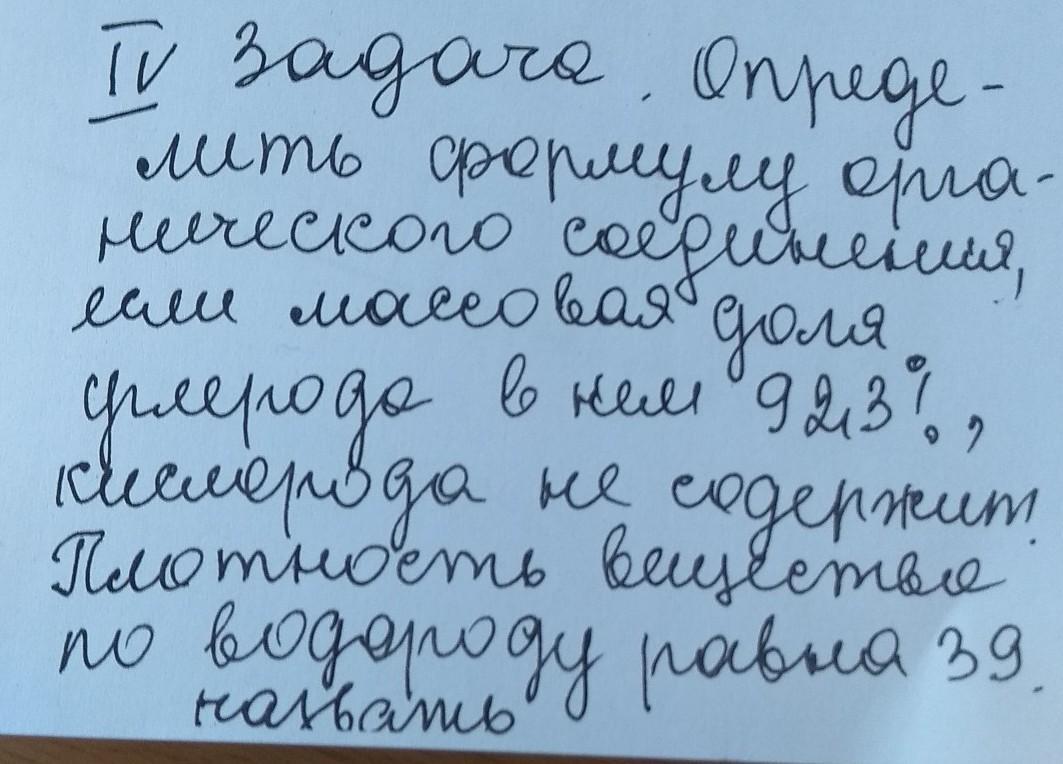 IV Задача. Опреде-
лить формулу орга-
нического соединения,
если массовая доля
углерода в нем 92,3%,
кислорода не содержит.
Плотность вещества
по водороду равна 39.
назвать